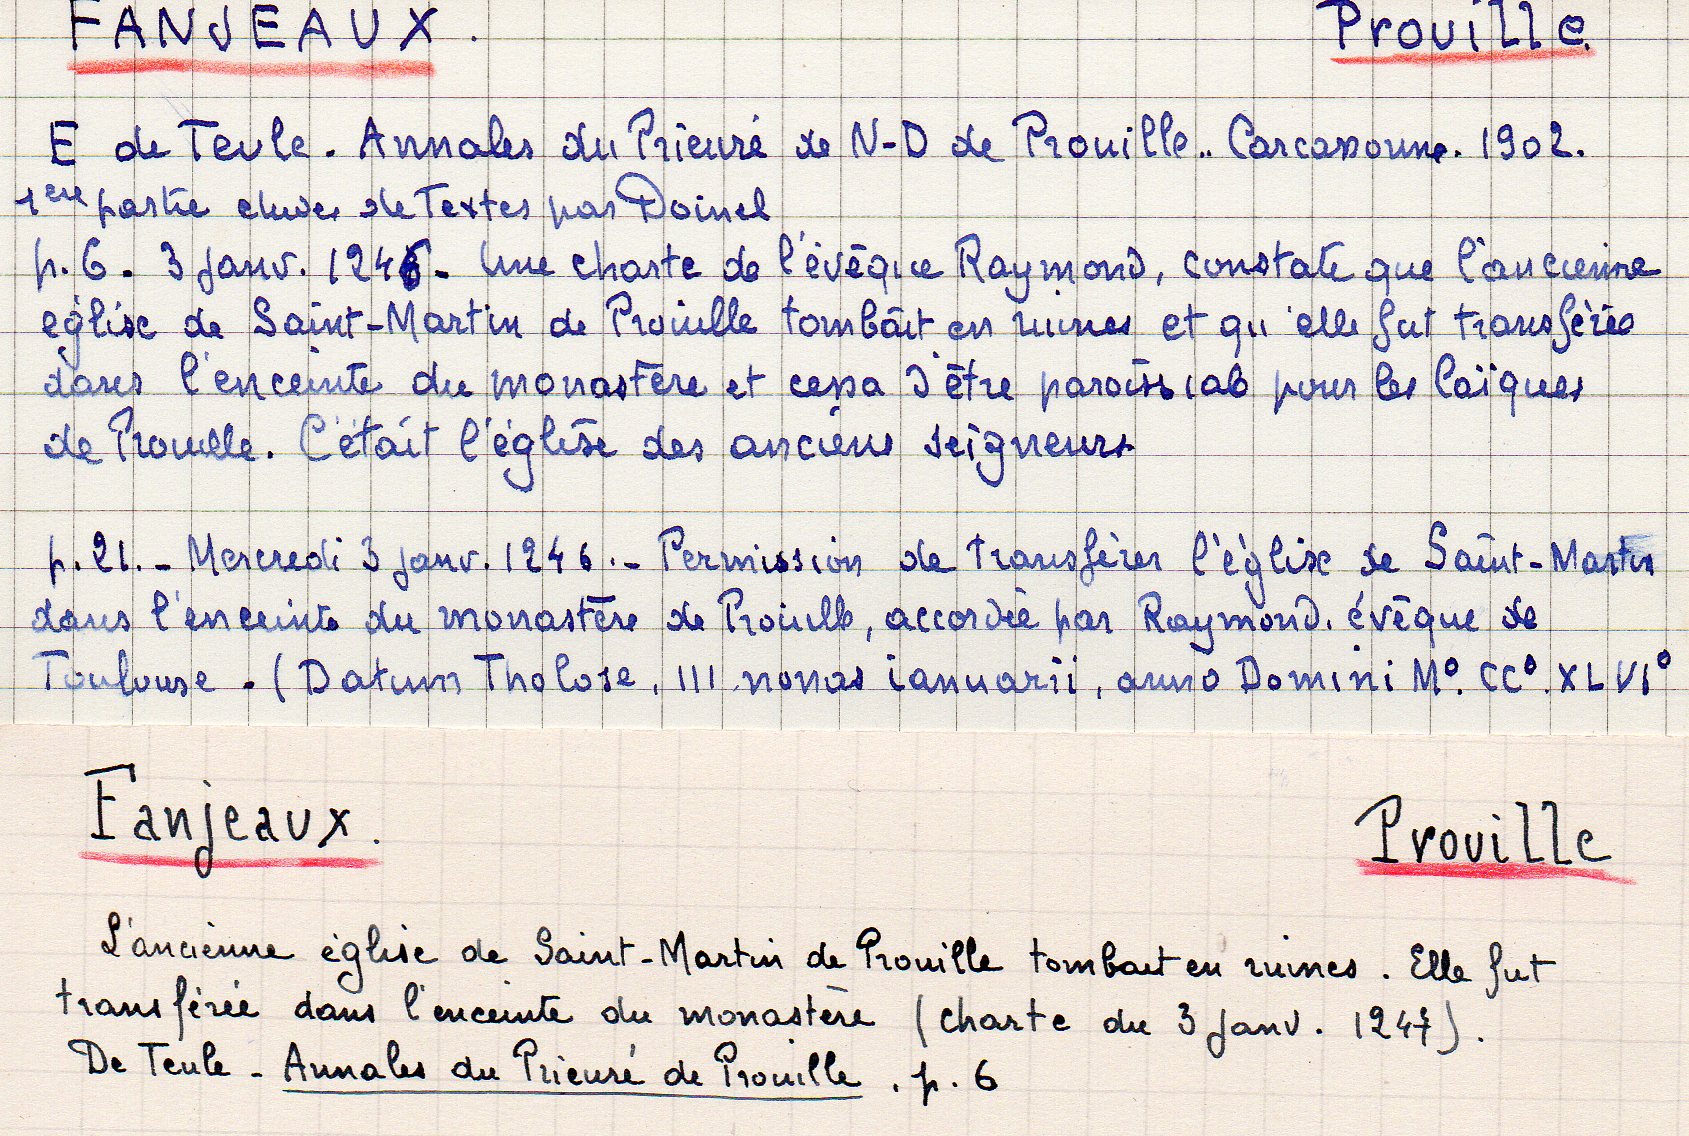 FANJEAUX. Prouille.
E de Teule. Annales du Prieuré de N-D de Prouille.. Carcassonne. 1902.
1ere partie choix de Textes par Doinel
p. 6. 3 janv. 1246. Une charte de l'évêque Raymond, constate que l'ancienne
église de Saint-Martin de Prouille tombait en ruines et qu'elle fut transférée
dans l'enceinte du monastère et cessa d'être paroissiale pour les laïques
de Prouille. C'était l'église des anciens seigneurs.
p. 21. - Mercredi 3 janv. 1246. - Permission de transférer l'église de Saint-Martin
dans l'enceinte du monastère de Prouille, accordée par Raymond. évêque de
Toulouse. (Datum Tholose, III nonas ianuarii, anno Domini Mº. CCº. XLVIº
Fanjeaux. Prouille
L'ancienne église de Saint-Martin de Prouille tombait en ruines. Elle fut
transférée dans l'enceinte du monastère (charte du 3 janv. 1247).
De Teule - Annales du Prieuré de Prouille. p. 6